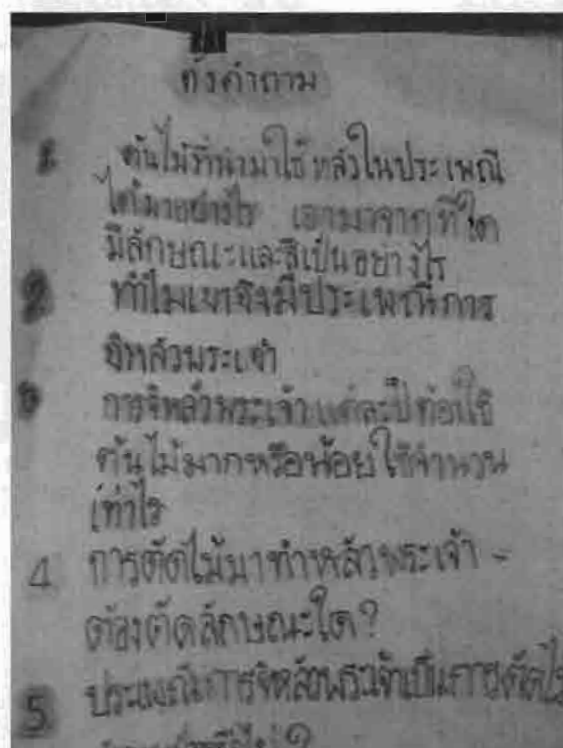 ตั้งคำถาม
1. ต้นไม้ที่นำมาใช้หลัวในประเพณี
ได้มาอย่างไร เอามาจากที่ใด
มีลักษณะและสีเป็นอย่างไร
2 ทำไมเขาจึงมีประเพณีการ
จิหลัวพระเจ้า
3 การจิหลัวพระเจ้าแต่ละปีต้องใช้
ต้นไม้มากหรือน้อยใช้จำนวน
เท่าไร
4 การตัดไม้มาทำหลัวพระเจ้า -
ต้องตัดลักษณะใด?
5 ประเพณีการจิหลัวพระเจ้าเป็นการตัดไ